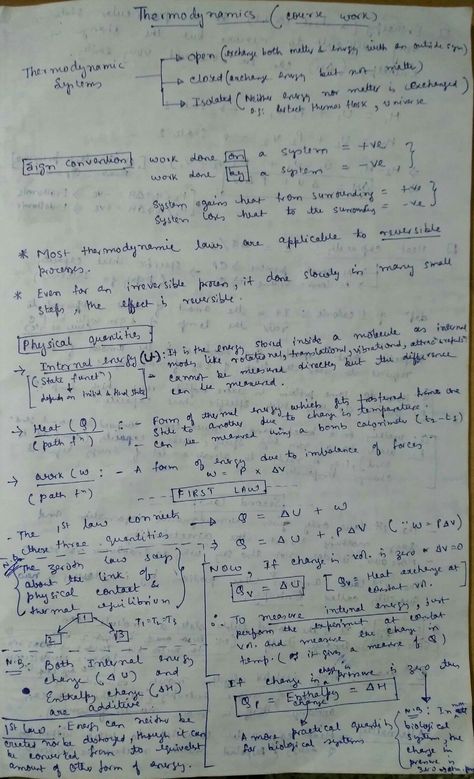 Thermodynamics (course work)
Thermodynamic Systems
→ Open (exchange both matter & energy with an outside sys)
→ Closed (exchange energy but not matter)
→ Isolated (Neither energy nor matter is exchanged)
e.g.: Perfect thermos flask, Universe
Sign convention
work done on a system = +ve
work done by a system = -ve
System gains heat from surrounding = +ve
System loses heat to the surrounding = -ve
* Most thermodynamic laws are applicable to reversible
processes.
* Even for an irreversible process, if done slowly in many small
steps, the effect is reversible.
Physical quantities
→ Internal energy (U): It is the energy stored inside a molecule as internal
modes like rotational, translational, vibrational,
(State funcn)
depends on initial & final state
= cannot be measured directly but the difference
can be measured.
→ Heat (Q) : - Form of thermal energy which gets
(path fn)
to another due to change in temperature.
- Can be measured using a bomb calorimeter (t2-t1)
→ Work (W : - A form of energy due to imbalance of forces
(path fn)
W = P x ΔV
FIRST LAW
- The 1st law connects
these three quantities
→ Q = ΔU + W
→ Q = ΔU + PΔV (∵ W = PΔV)
N.B. The zeroth law says
about the link of
physical contact &
thermal equilibrium
1
2
3
T1=T2=T3
N.B: Both Internal energy
change (ΔU) and
Enthalpy change (ΔH)
are additive.
1st law: Energy can neither be
created nor be destroyed, though it can
be converted from to equivalent
amount of other form of energy.
NOW, If change in vol. is zero ΔV=0
QV = ΔU
[QV = Heat exchange at
constant vol.
∴ To measure internal energy, just
perform the experiment at constant
vol. and measure the change in
temp. (as it gives a measure of Q)
If change in pressure is zero then
QP = Enthalpy change = ΔH
A more practical quantity
for biological systems
N.B: In
biological
system, the
change in
pressure is